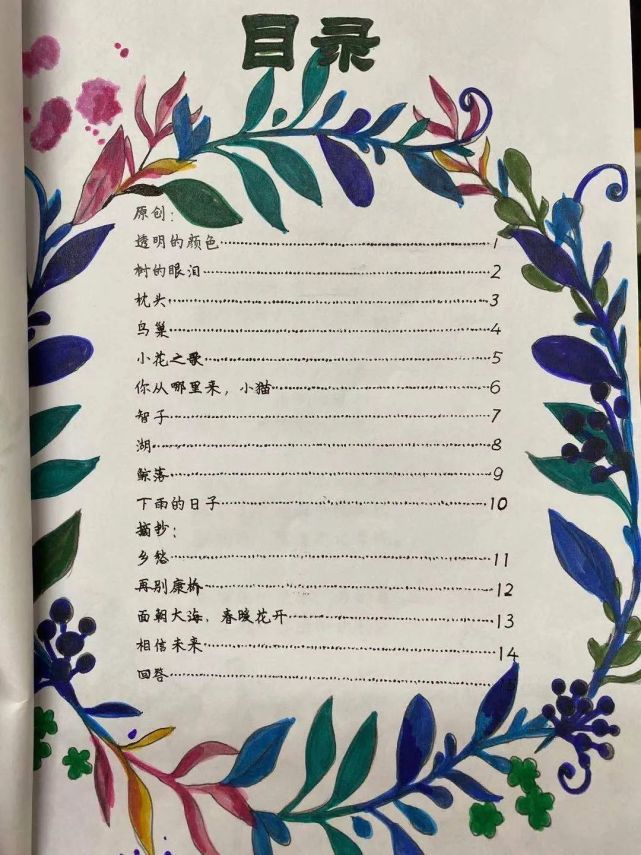 目录
原创：
透明的颜色 1
树的眼泪 2
枕头 3
鸟巢 4
小花之歌 5
你从哪里来，小猫 6
智子 7
湖 8
鲸落 9
下雨的日子 10
摘抄：
乡愁 11
再别康桥 12
面朝大海，春暖花开 13
相信未来 14
回答